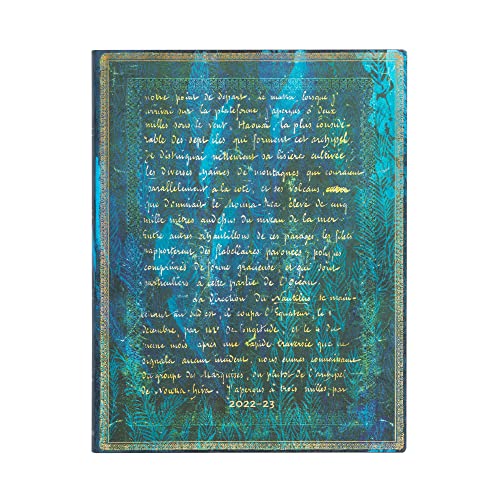 notre point de départ, le matin lorsque j'
arrivai sur la plateforme j'aperçus à deux
milles sous le vent, Haouaï la plus considé-
rable des sept îles qui forment cet archipel.
Je distinguai nettement sa lisière cultivée,
les diverses chaînes de montagnes qui couraient
parallèlement à la côte, et ses volcans
que dominait le Mouna-Kéa, élevé de cinq
mille mètres au dessus du niveau de la mer.
Entre autres échantillons de ces parages, les filets
rapportèrent des flabellaires pavonées, polypes
comprimés de forme gracieuse, et qui sont
particuliers à cette partie de l'Océan
La direction du Nautilus se main-
au sud est. il coupa l'Equateur, le 1
décembre, par 142° de longitude, et le 4 du
même mois, après une rapide traversée que ne
signala aucun incident, nous eûmes connaissance
du groupe des Marquises, ou plutôt de l'archipel
de Nouka-hiva. J'aperçus à trois milles par
2022-23